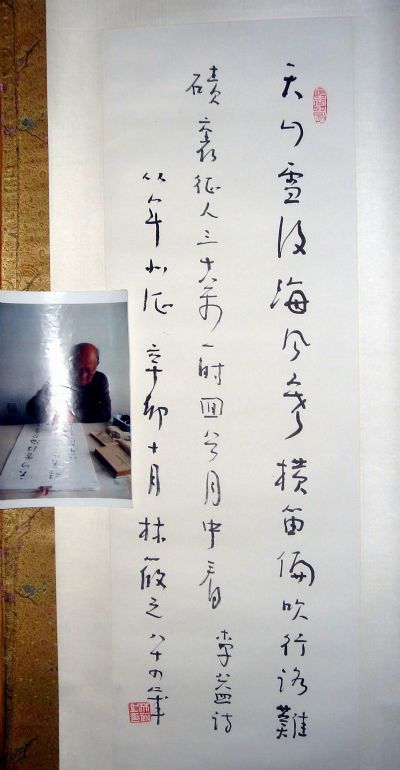 天山雪後海风寒橫笛偏吹行路難
磧裏征人三十萬一時回首月中看 李益詩
从軍北征 辛卯十月林筱之八十四筆